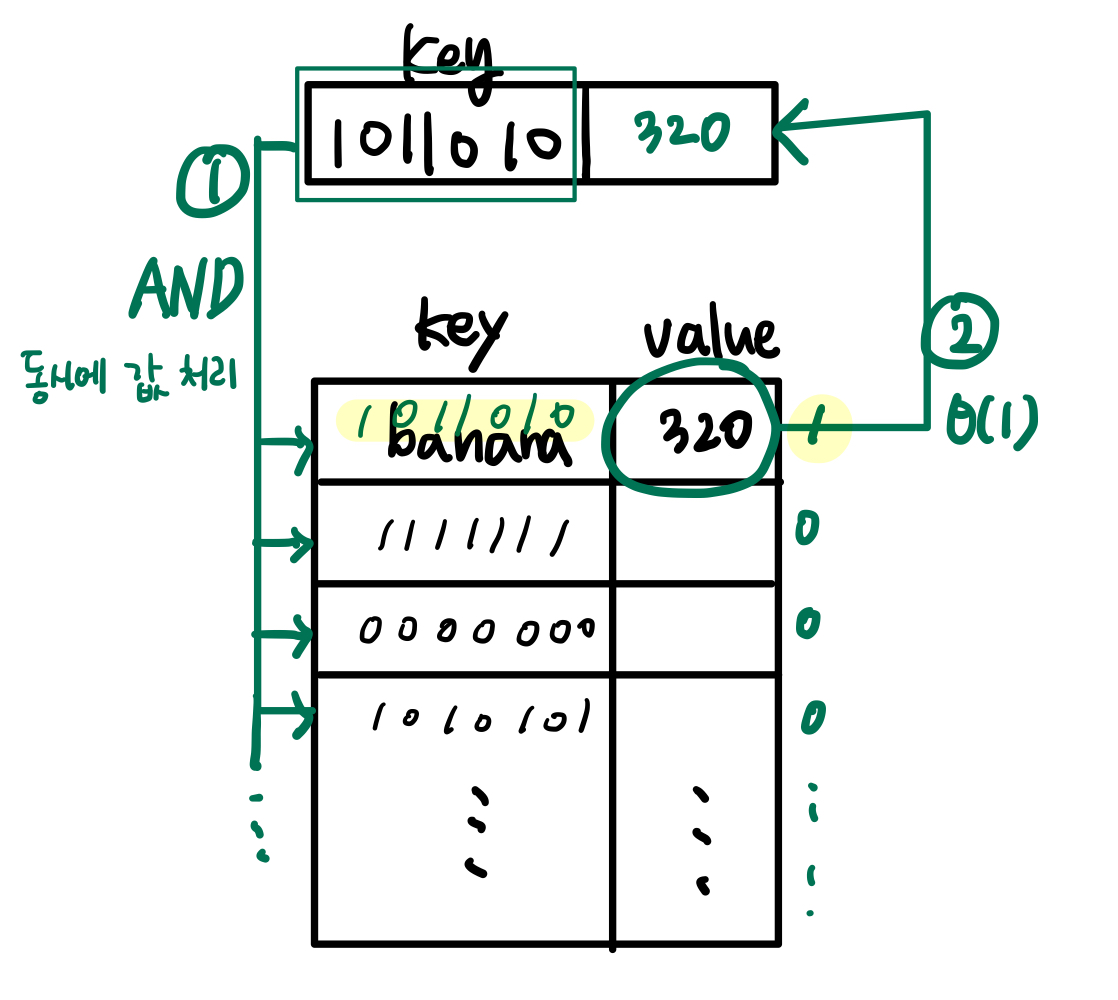 key
1011010 320
①
AND
동시에 값 처리
key value
1011010
banana 320 1
②
θ(1)
1111111 0
0000000 0
1010101 0